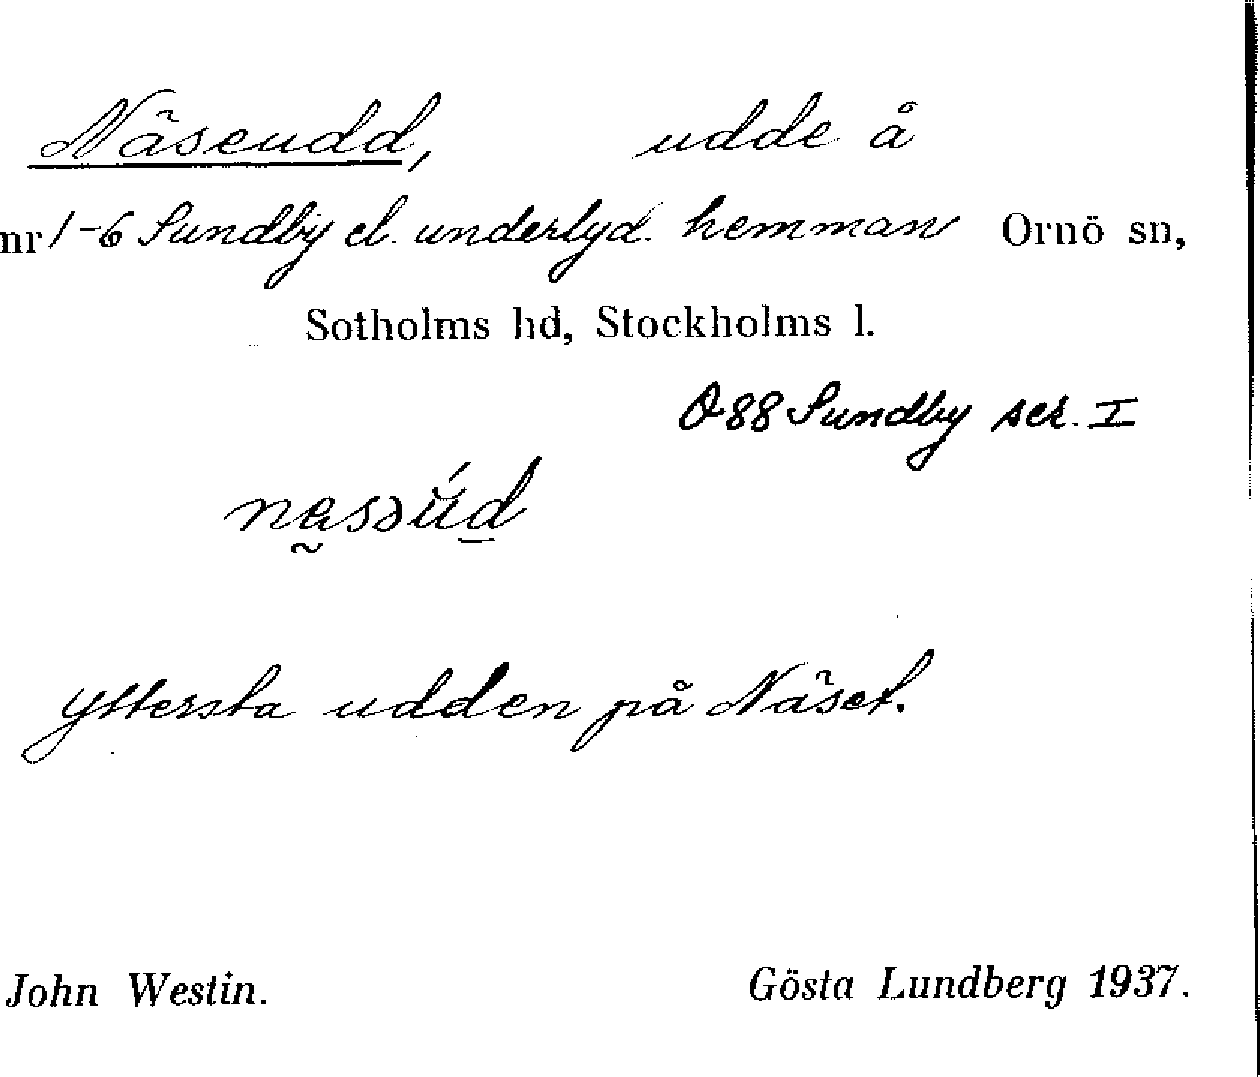 Näseudd, udde å
nr 1-6 Sundby el. underlyd. hemman Ornö sn,
Sotholms hd, Stockholms l.
Ö 88 Sundby ser. I
Yttersta udden på Näset.
John Westin. Gösta Lundberg 1937.